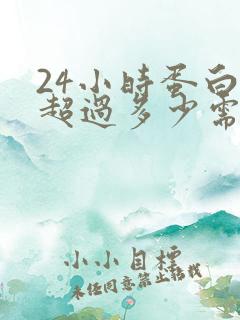 24小时蛋白
超過多少需
小小目標
未经同意禁止转载